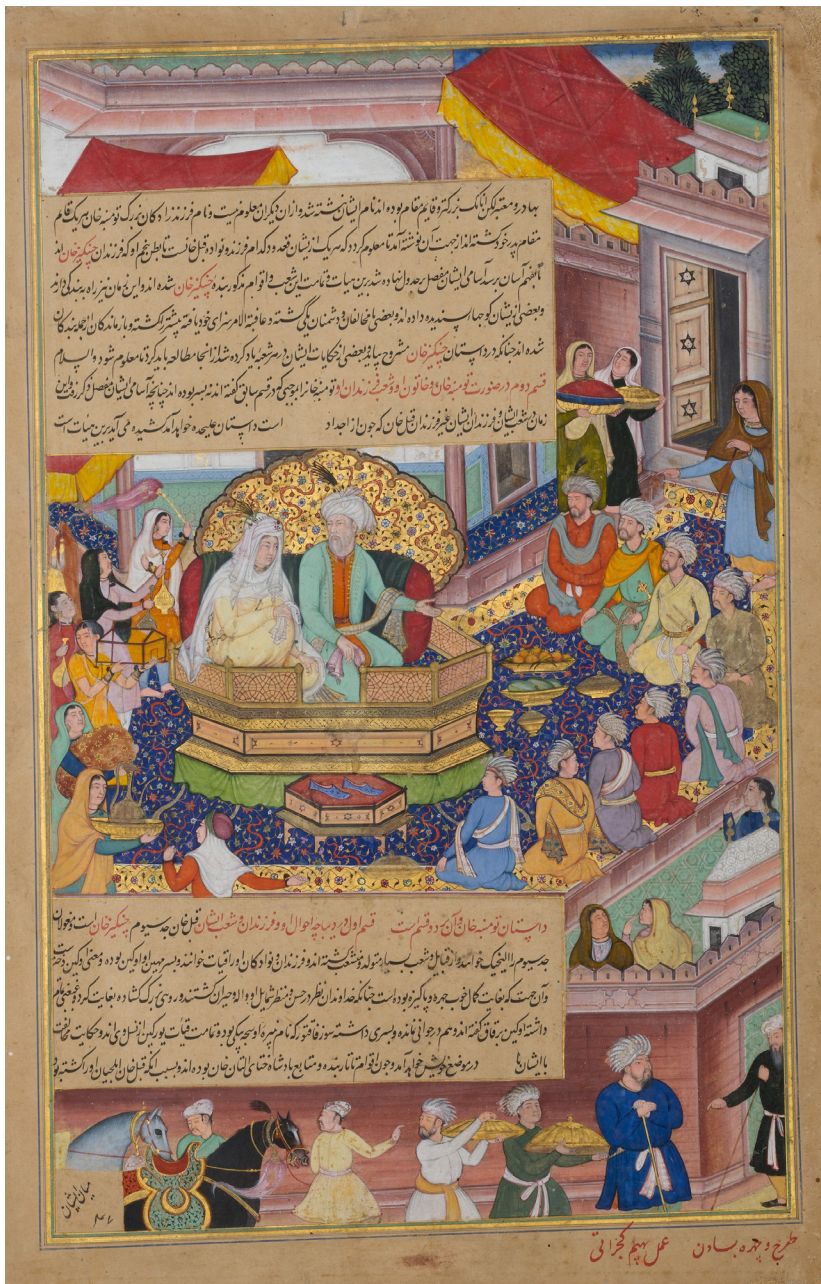 بهادر و معتبر لکن آنانک بزرکتر و قائم مقام بوده اند نام ایشان نبشته شد و از آن دیکران معلوم نیست و نام فرزند زادکان بزرک تومنه خان هر یک قائم
مقام پدر خود کشته اند از جهت آن نوشته آمد تا معلوم کردد که هر یک از ایشان قعدود کدام فرزند بوده و قبل خانست تا بطن پنجم او که فرزندان چنکیز خان اند
تا بفهم آسان برسد آسامی ایشان مفصل بر جدول نهاده شد برین هیات و تمامت این شعب و اقوام مذکور بندهٔ چنکیز خان شده اند و این زمان نیز راه بندکی دارند
و بعضی از ایشان کوچها پسندیده داده اند و بعضی با مخالفان و دشمنان یکی کشته و عاقبة الامر سزای خود یافته بیشتر کشته و بازماندکان از جمله بندکان
شده اند چنانکه در داستان چنکیز خان مشروح بیاید و بعضی از حکایات ایشان در هر شعبه یاد کرده شد از آنجا مطالعه باید کرد تا معلوم شود والسلام
قسم دوم در صورت تومنه خان و خاتون او و شعب فرزندان او تومنه خان را بموجبی که در قسم سابق کفته اند نه پسر بوده اند چنانچه آسامی ایشان مفصل ذکر رفت و این
زمان در شعب ایشان و فرزندان ایشان غیر فرزندان قبل خان که چون از اجداد است داستان علیحده خواهد آمد کشیده می آید برین هیات است
داستان تومنه خان و آن بر دو قسم است قسم اول در دیباجه احوال او و فرزندان و شعب ایشان قبل خان جد سیوم چنکیز خان است و مغولان
جد سیوم را النجیک خوانند و از و قبایل و شعب بسیار متولد و منشعب کشته اند و فرزندان و نوادکان او را قیات خوانند و پسر مهین او اوکین بوده و معنی اوکین دختر است
و آن جهت که بغایت کل خوب چهره و پاکیزه بوده است چنانکه خداوندان نظر در حسن و منظر شمایل او واله و حیران کشتندی و روی بزرک کشاده بغایت کرد
داشته اوکین برقاق کفته اند و هم در جوانی نمانده و پسری داشته سورقاقتو که نام بوده و تمامت قیات یورکین از نسل وی اند و حکایت مخالفت
با ایشان ها در موضع خویش خواهد آمد و چون اقوام تاتار بنده و متابع پادشاه ختای التان خان بوده اند و بسبب آنکه قبل خان ایلچیان او را کشته بود
طرح و چهره بساون عمل بهیم کجراتی